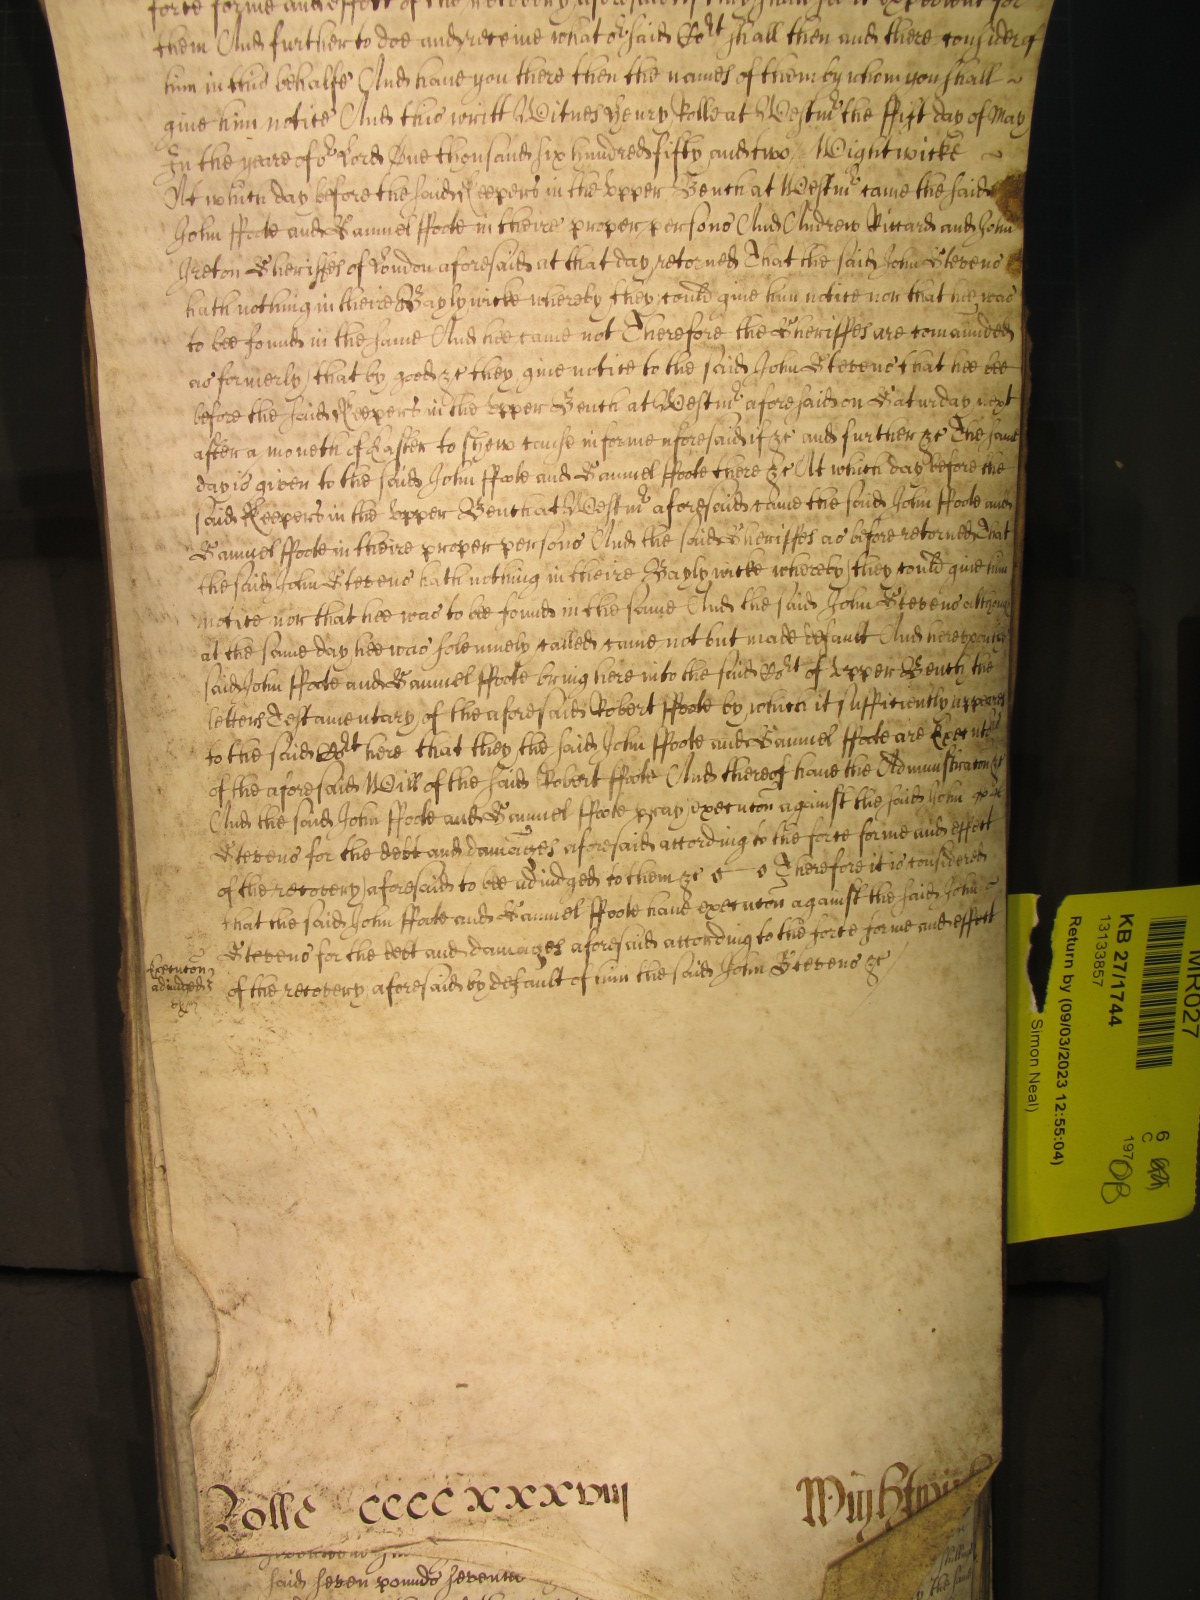 force forme and effect of the recovery aforesaid if they shall see it expedient for
them And further to doe and receive what or said Cort shall then and there consider of
him in this behalfe And have you there then the names of them by whom you shall
give him notice And this writt Witnes Henry Rolle at Westmr the ffirst day of May
In the yeare of or Lord One thousand six hundred fifty and two Wightwicke
At which day before the said Keepers in the Vpper Bench at Westmr came the said
John ffoote and Samuel ffoote in theire proper persons And Andrew Riccard and John
Ireton Sheriffes of London aforesaid at that day retorned That the said John Stevens
hath nothing in theire Baylywicke whereby they could give him notice nor that hee was
to bee found in the same And hee came not Therefore the Sheriffes are comaunded
as formerly that by good &c they give notice to the said John Stevens that hee bee
before the said Keepers in the Vpper Bench at Westmr aforesaid on Saturday next
after a moneth of Easter to shew cause in forme aforesaid if &c and further &c The same
day is given to the said John ffoote and Samuel ffoote there &c At which day before the
said Keepers in the Vpper Bench at Westmr aforesaid came the said John ffoote and
Samuel ffoote in theire proper persons And the said Sheriffes as before retorned That
the said John Stevens hath nothing in theire Baylywicke whereby they could give him
notice nor that hee was to bee found in the same And the said John Stevens although
at the same day hee was solemnely called came not but made default And hereupon the
said John ffoote and Samuel ffoote bring here into the said Cort of Vpper Bench the
letters Testamentary of the aforesaid Robert ffoote by which it sufficiently appeares
to the said Cort here that they the said John ffoote and Samuel ffoote are Executors
of the aforesaid Will of the said Robert ffoote And thereof have the Administracon &c
And the said John ffoote and Samuel ffoote pray execucon against the said John
Stevens for the debt and damages aforesaid according to the force forme and effect
of the recovery aforesaid to bee adiudged to them &c Therefore it is considered
that the said John ffoote and Samuel ffoote have execucon against the said John
Stevens for the debt and damages aforesaid according to the force forme and effect
Execucon
adiudged
of the recovery aforesaid by default of him the said John Stevens &c
Rolle CCCCXXXVIII
Wightwick
said seven pounds seventie
MR027
KB 27/1744
13133857
Return by (09/03/2023 12:55:04)
Simon Neal)
6
C
197